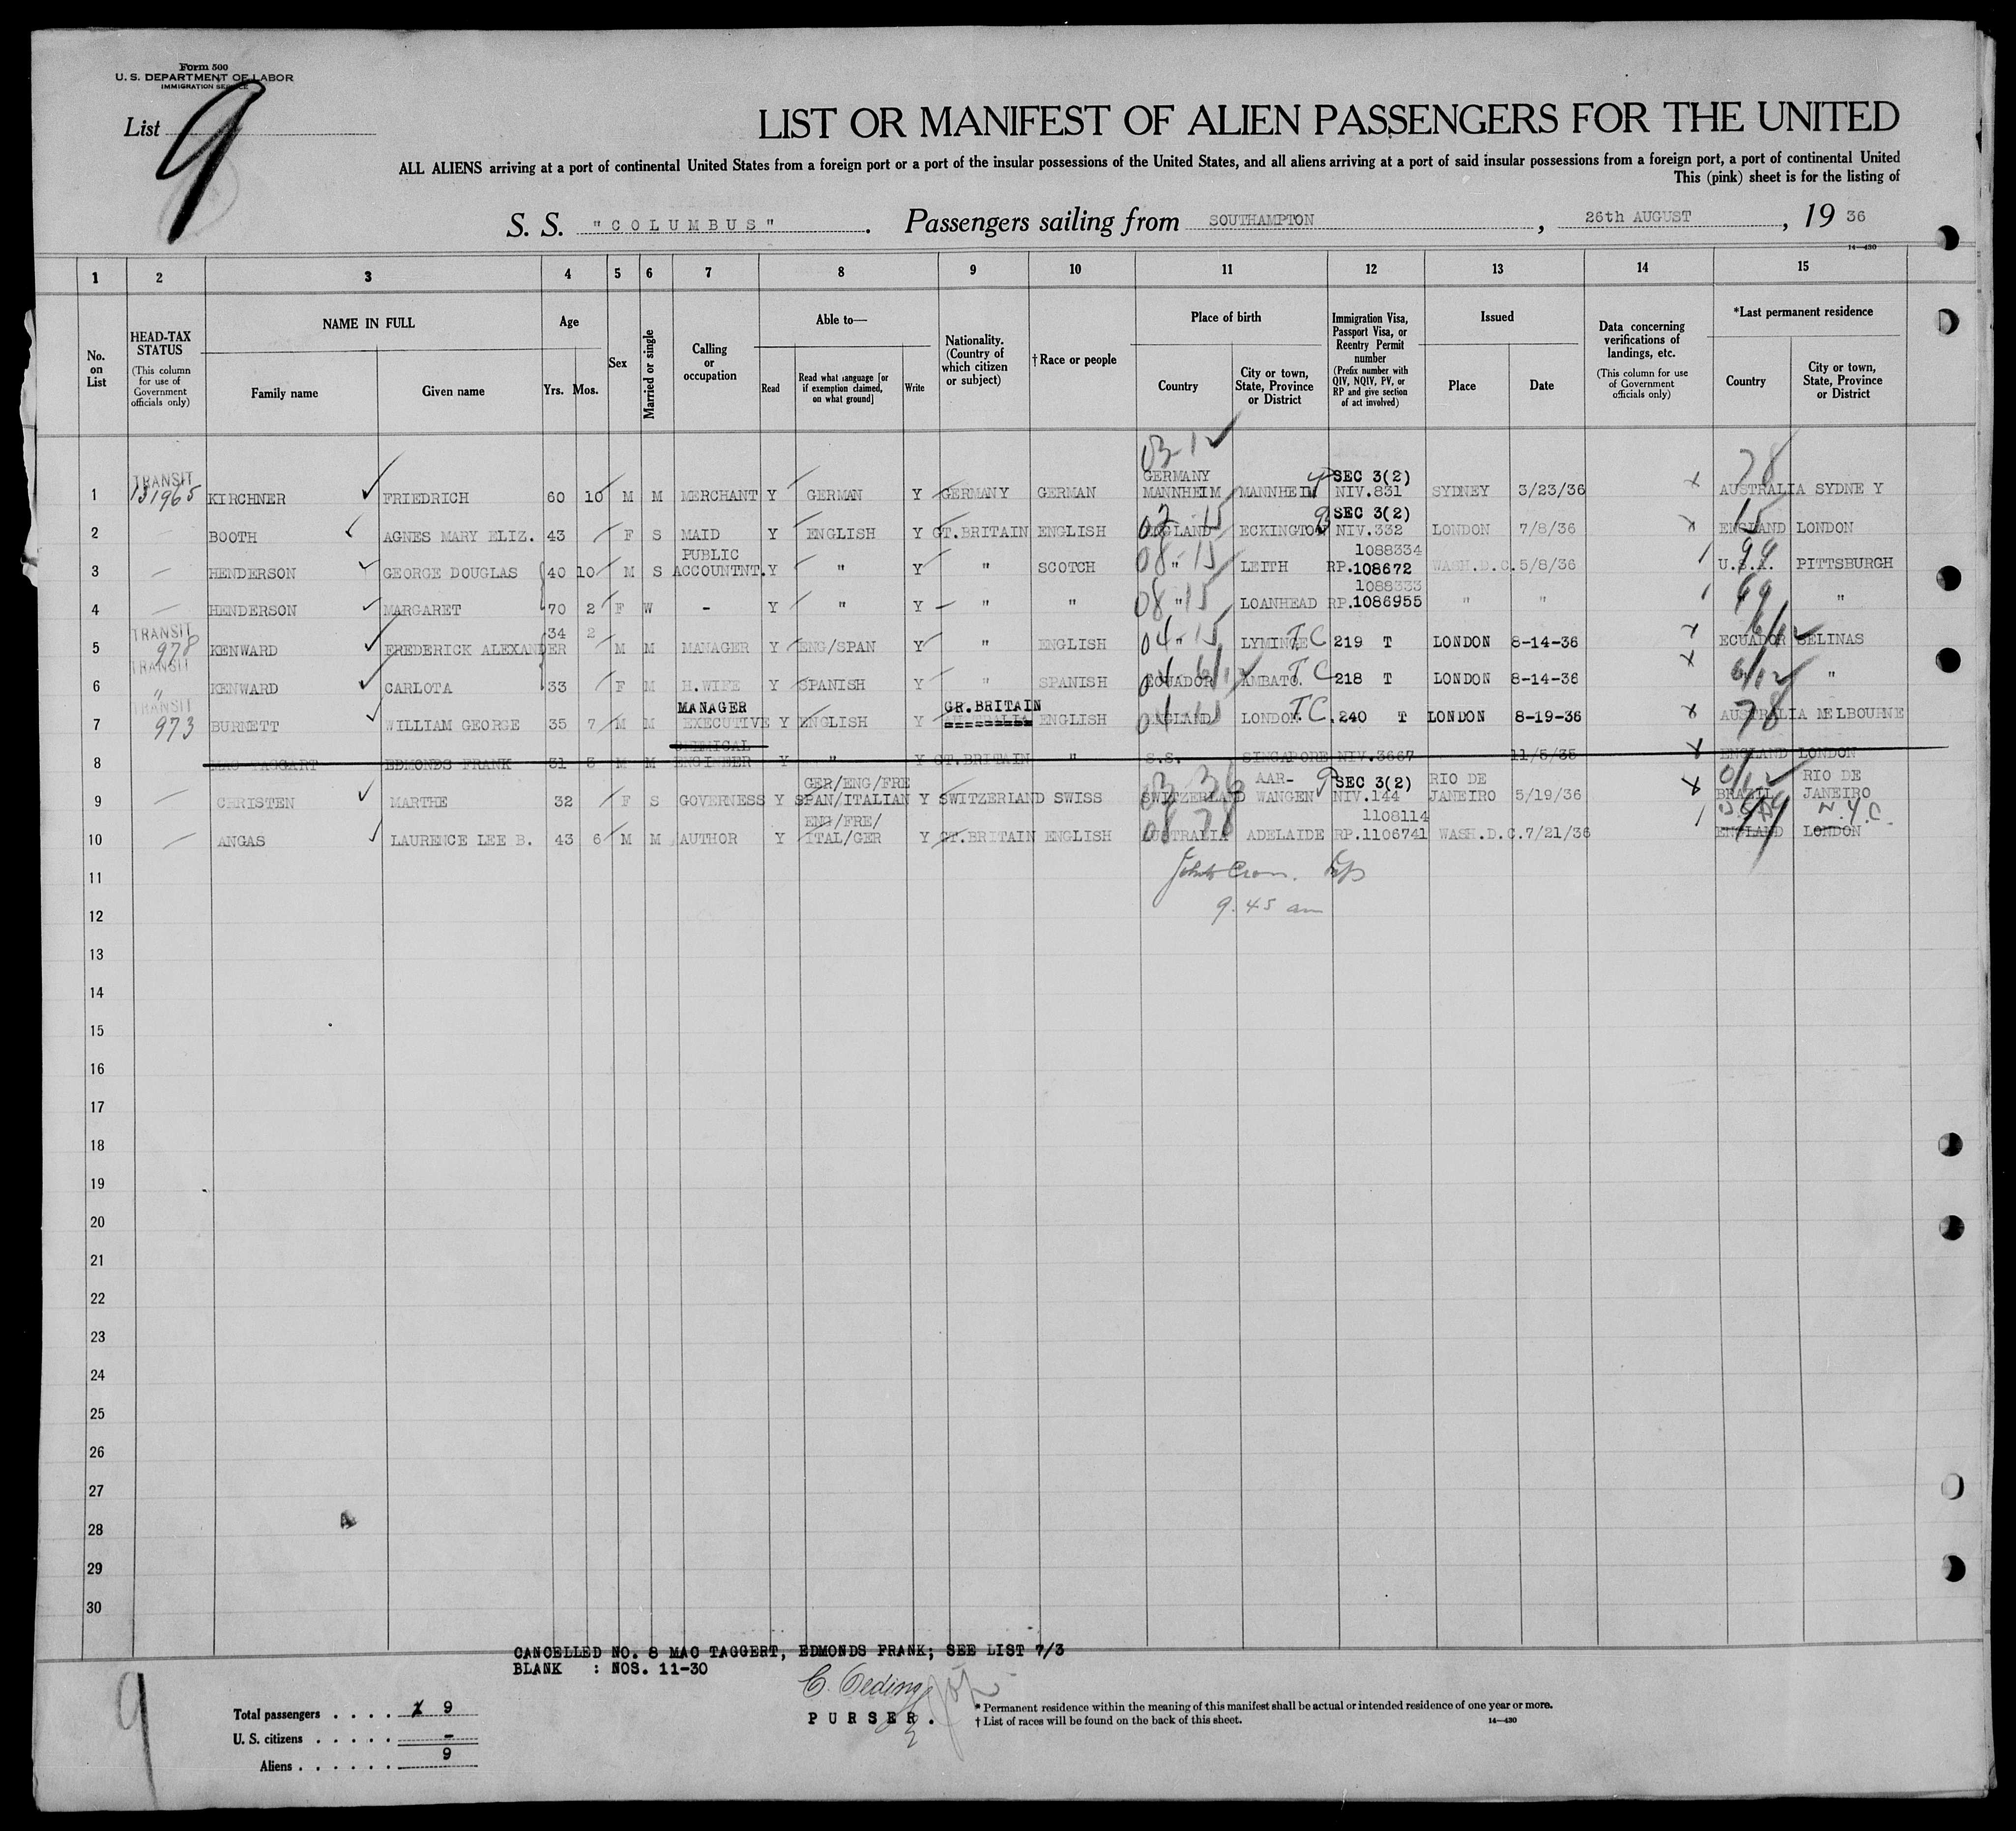 Form 500
U. S. DEPARTMENT OF LABOR
IMMIGRATION SERVICE
List 9
LIST OR MANIFEST OF ALIEN PASSENGERS FOR THE UNITED
ALL ALIENS arriving at a port of continental United States from a foreign port or a port of the insular possessions of the United States, and all aliens arriving at a port of said insular possessions from a foreign port, a port of continental United
This (pink) sheet is for the listing of
S. S. "COLUMBUS". Passengers sailing from SOUTHAMPTON, 26th AUGUST, 19 36
14—430
1 2 3 4 5 6 7 8 9 10 11 12 13 14 15
No. on List
HEAD-TAX STATUS
(This column for use of Government officials only)
NAME IN FULL
Family name Given name
Age
Yrs. Mos.
Sex
Married or single
Calling or occupation
Able to—
Read
Read what language [or if exemption claimed, on what ground]
Write
Nationality. (Country of which citizen or subject)
†Race or people
Place of birth
Country
City or town, State, Province or District
Immigration Visa, Passport Visa, or Reentry Permit number
(Prefix number with QIV, NQIV, PV, or RP and give section of act involved)
Issued
Place Date
Data concerning verifications of landings, etc.
(This column for use of Government officials only)
*Last permanent residence
Country
City or town, State, Province or District
03-12 78
TRANSIT GERMANY SEC 3(2)
1 131965 KIRCHNER FRIEDRICH 60 10 M M MERCHANT Y GERMAN Y GERMANY GERMAN MANNHEIM MANNHEIM NIV.831 SYDNEY 3/23/36 AUSTRALIA SYDNEY
02-15 SEC 3(2) 15
2 BOOTH AGNES MARY ELIZ. 43 F S MAID Y ENGLISH Y GT.BRITAIN ENGLISH ENGLAND ECKINGTON NIV.332 LONDON 7/8/36 ENGLAND LONDON
PUBLIC 08-15 1088334 99
3 — HENDERSON GEORGE DOUGLAS 40 10 M S ACCOUNTNT. Y " Y " SCOTCH " LEITH RP.108672 WASH.D.C. 5/8/36 U.S.A. PITTSBURGH
08-15 1088333 99
4 — HENDERSON MARGARET 70 2 F W - Y " Y " " " LOANHEAD RP.1086955 " " " "
TRANSIT 34 2 04-15 T C 6/12
5 978 KENWARD FREDERICK ALEXANDER M M MANAGER Y ENG/SPAN Y " ENGLISH " LYMINGE 219 T LONDON 8-14-36 ECUADOR SELINAS
TRANSIT 6/12 T C 6/12
6 " KENWARD CARLOTA 33 F M H.WIFE Y SPANISH Y " SPANISH ECUADOR AMBATO. 218 T LONDON 8-14-36 "
TRANSIT MANAGER GR.BRITAIN T C 78
7 973 BURNETT WILLIAM GEORGE 35 7 M M EXECUTIVE Y ENGLISH Y AUSTRALIA ENGLISH ENGLAND LONDON. 240 T LONDON 8-19-36 AUSTRALIA MELBOURNE
CHEMICAL
8 MAC TAGGART EDMONDS FRANK 31 3 M M ENGINEER Y " Y GT.BRITAIN " S.S. SINGAPORE NIV.3667 11/5/35 ENGLAND LONDON
GER/ENG/FRE 03-36 AAR- SEC 3(2) RIO DE RIO DE
9 — CHRISTEN MARTHE 32 F S GOVERNESS Y SPAN/ITALIAN Y SWITZERLAND SWISS SWITZERLAND WANGEN NIV.144 JANEIRO 5/19/36 BRAZIL JANEIRO
ENG/FRE/ 08 78 1108114 N.Y.C.
10 — ANGAS LAURENCE LEE B. 43 6 M M AUTHOR Y ITAL/GER Y GT.BRITAIN ENGLISH AUSTRALIA ADELAIDE RP.1106741 WASH.D.C. 7/21/36 ENGLAND LONDON
11
12 9.45 am
13
14
15
16
17
18
19
20
21
22
23
24
25
26
27
28
29
30
CANCELLED NO. 8 MAC TAGGERT, EDMONDS FRANK; SEE LIST 7/3
BLANK : NOS. 11-30
C. Oeding
PURSER.
9
Total passengers . . . . 9
U. S. citizens . . . . . -
Aliens . . . . . . 9
* Permanent residence within the meaning of this manifest shall be actual or intended residence of one year or more.
† List of races will be found on the back of this sheet.
14—430